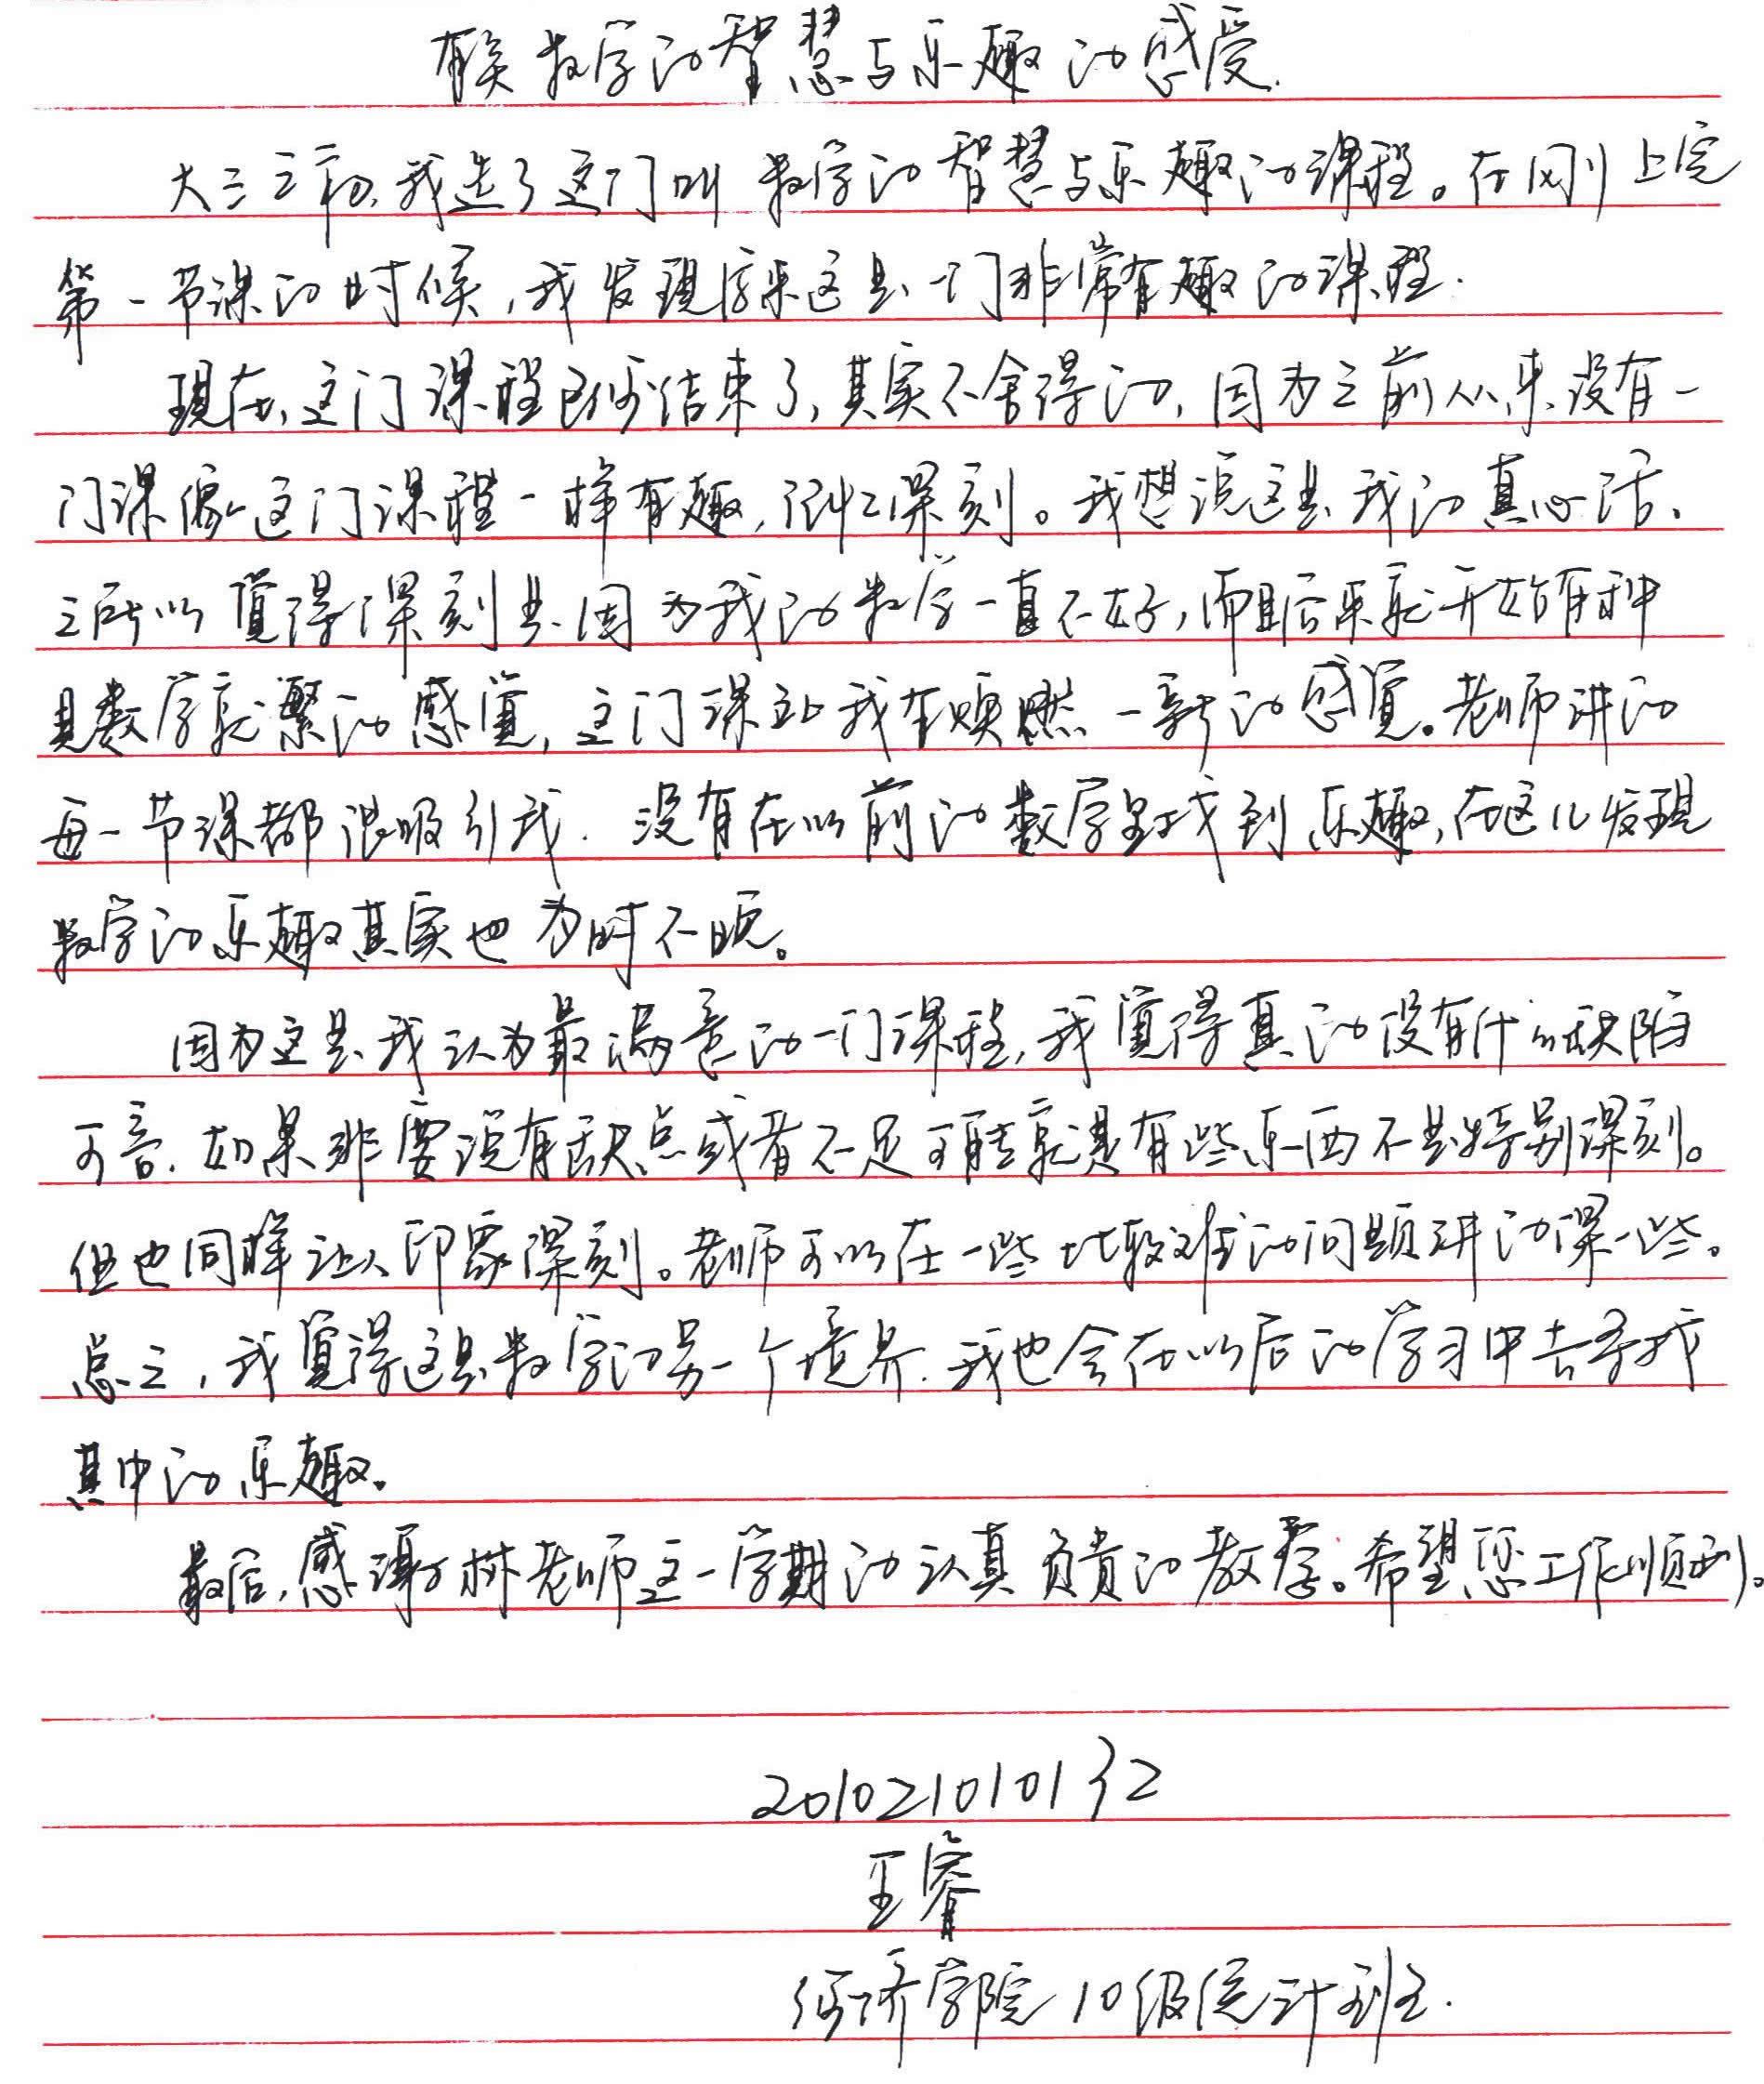 有关数学的智慧与乐趣的感受.
大三之初,我选了这门叫数学的智慧与乐趣的课程。在刚上完
第一节课的时候,我发现原来这是一门非常有趣的课程.
现在,这门课程已经结束了,其实不舍得的,因为之前从来没有一
门课像这门课程一样有趣,深刻。我想说这是我的真心话.
之所以觉得深刻是因为我的数学一直不好,而且后来就开始有种
见数学就繁的感觉,这门课让我有焕然一新的感觉。老师讲的
每一节课都很吸引我.没有在以前的数学里找到乐趣,在这儿发现
数学的乐趣其实也为时不晚。
因为这是我认为最满意的一门课程,我觉得真的没有什么缺陷
可言.如果非要说有缺点或者不足可能就是有些东西不是特别深刻。
但也同样让人印象深刻。老师可以在一些比较难的问题讲的深一些。
总之,我觉得这是数学的另一个境界.我也会在以后的学习中去寻找
其中的乐趣。
最后,感谢林老师这一学期的认真负责的教学。希望您工作顺利。
20102101032
王睿
经济学院10级统计班.